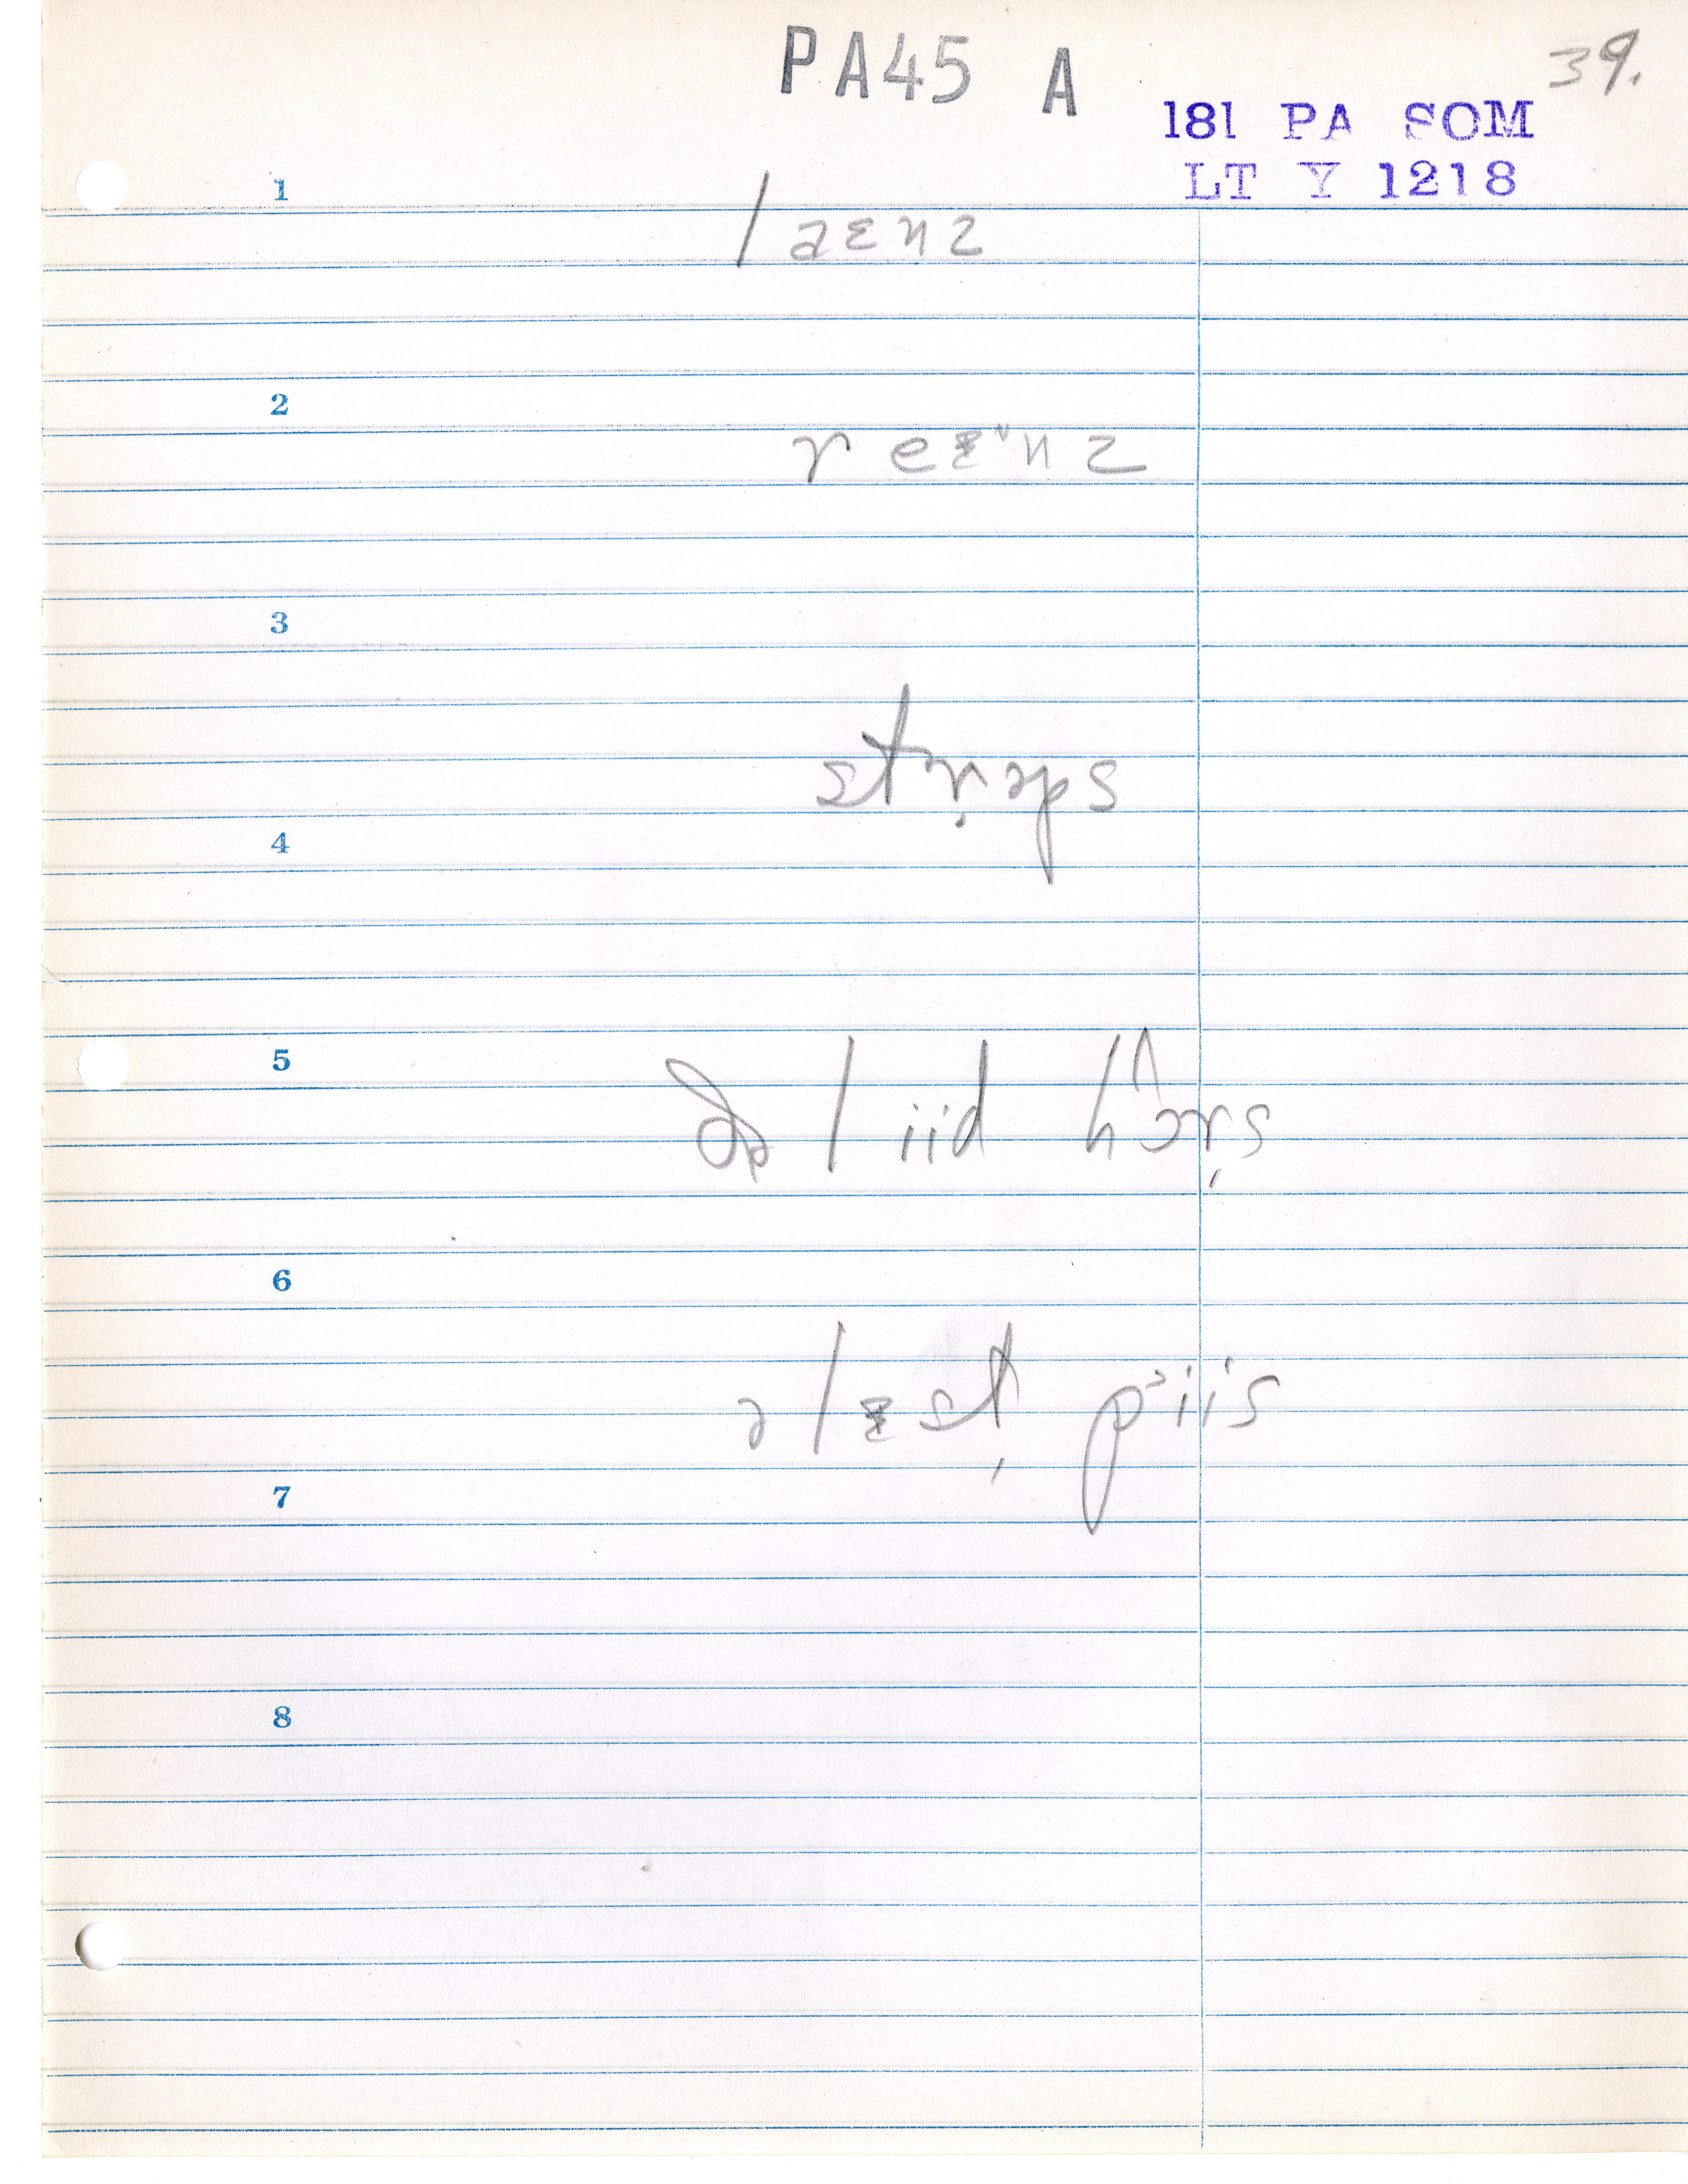 PA45 A
39.
181 PA SOM
LT Y 1218
1
laɛnz
2
reɛnz
3
straps
4
5
ðə liid hɔrs
6
ə lɛst piis
7
8